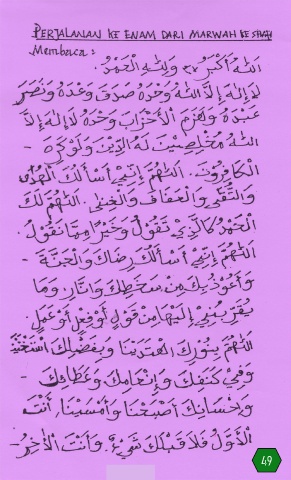 PERJALANAN KE ENAM DARI MARWAH KE SHAFA
Membaca :
اَللهُ أَكْبَرُ ٣× وَلِلّٰهِ الْحَمْدُ.
لَا إِلٰهَ إِلَّا اللهُ وَحْدَهُ صَدَقَ وَعْدَهُ وَنَصَرَ
عَبْدَهُ وَهَزَمَ الْأَحْزَابَ وَحْدَهُ لَا إِلٰهَ إِلَّا
اللهُ مُخْلِصِيْنَ لَهُ الدِّيْنَ وَلَوْ كَرِهَ -
الْكَافِرُوْنَ. اَللّٰهُمَّ إِنِّيْ أَسْأَلُكَ الْهُدٰى
وَالتُّقٰى وَالْعَفَافَ وَالْغِنٰى. اَللّٰهُمَّ لَكَ
الْحَمْدُ كَالَّذِيْ نَقُوْلُ وَخَيْرًا مِمَّا نَقُوْلُ.
اَللّٰهُمَّ إِنِّيْ أَسْأَلُكَ رِضَاكَ وَالْجَنَّةَ -
وَأَعُوْذُ بِكَ مِنْ سَخَطِكَ وَالنَّارِ وَمَا
يُقَرِّبُنِيْ إِلَيْهَا مِنْ قَوْلٍ أَوْ فِعْلٍ أَوْ عَمَلٍ.
اَللّٰهُمَّ بِنُوْرِكَ اهْتَدَيْنَا وَبِفَضْلِكَ اسْتَغْنَيْنَا
وَفِيْ كَنَفِكَ وَإِنْعَامِكَ وَعَطَائِكَ -
وَإِحْسَانِكَ أَصْبَحْنَا وَأَمْسَيْنَا. أَنْتَ
الْأَوَّلُ فَلَا قَبْلَكَ شَيْءٌ. وَأَنْتَ الْأٰخِرُ -
49